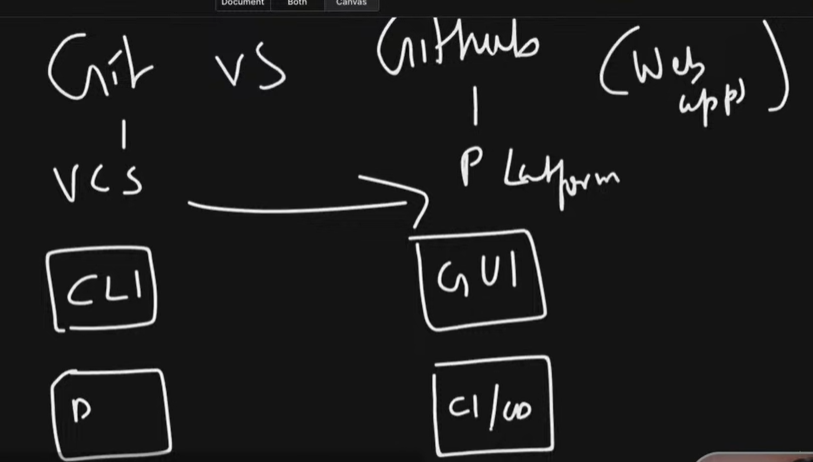 Document Both Canvas
Git vs Github (Web app)
VCS Platform
CLI GUI
D CI/CD